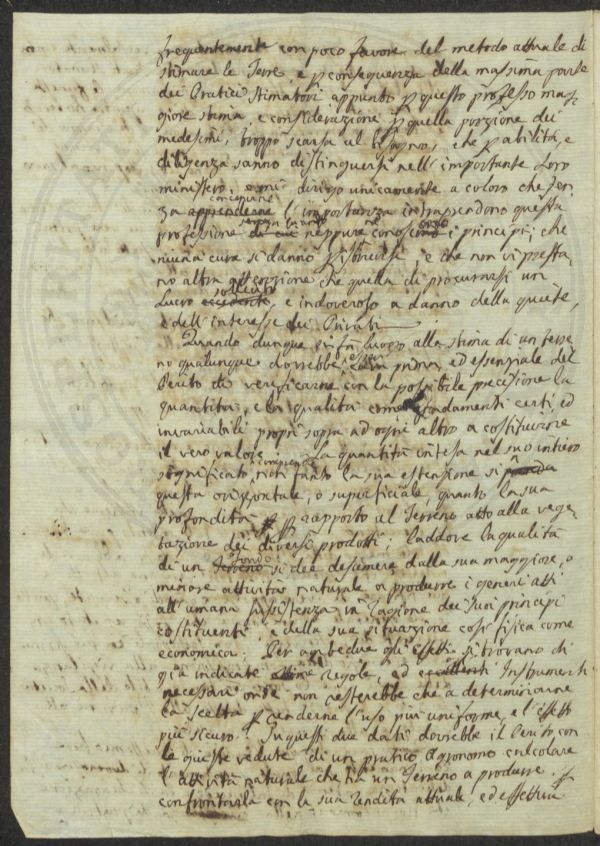 frequentemente con poco favore del metodo attuale di
stimare le Terre, e p conseguenza della massima parte
dei Pratici Stimatori appunto p questo professo mag-
giore stima, e considerazione p quella porzione dei
medesimi, troppo scarsa al bisogno, che p abilità, e
diligenza sanno distinguersi nell'importante Loro
ministero, e mi dirigo unicamente a coloro che sen-
za apprenderne l'importanza intraprendono questa
professione di cui neppure conoscono i principj, che
niuna cura si danno p istruirsi, e che non vi presta-
no altra attenzione che quella di procurarsi un
Lucro eccedente, e indoveroso a danno della quiete,
e dell'interesse dei Privati
Quando dunque si fa luogo alla stima di un terre
no qualunque dovrebbe esser primo, ed essenziale del
Perito di verificarne con la possibile precisione la
quantità, e la qualità come fondamenti certi ed
invariabili proprj sopra ad ogni altro a costituire
il vero valore. La quantità intesa nel suo intiero
significato, non tanto la sua estensione si
questa orizzontale, o superficiale, quanto la sua
profondità p rapporto al Terreno atto alla vege-
tazione dei diversi prodotti; laddove la qualità
di un fondo si dee desumere dalla sua maggiore, o
minore attività naturale a produrre i generi atti
all'umana sussistenza in ragione dei suoi principj
costituenti, e della sua situazione così fisica come
economica. Per ambedue gli effetti si trovano di
già indicate ottime regole, ed eccellenti Instrumenti
necessarj onde non resterebbe che a determinarne
la scelta p renderne l'uso più uniforme, e l'effetto
più sicuro. In questi due dati dovrebbe il Perito con
le giuste vedute di un pratico Agronomo calcolare
l'attività naturale che ha un Terreno a produrre, p
confrontarla con la sua rendita attuale, ed effettiva